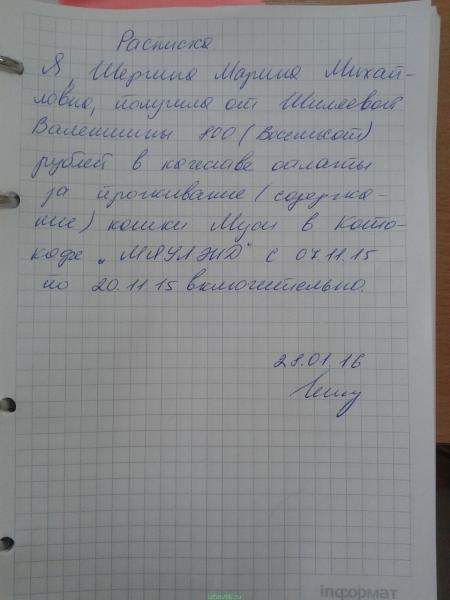 Расписка
Я, Шергина Марина Михай-
ловна, получила от Шиляевой
Валентины 800 (Восемьсот)
рублей в качестве оплаты
за проживание (содержа-
ние) кошки Муси в кото-
кафе "МЯУЛЭНД" с 07.11.15
по 20.11.15 включительно.
28.01.16
информат